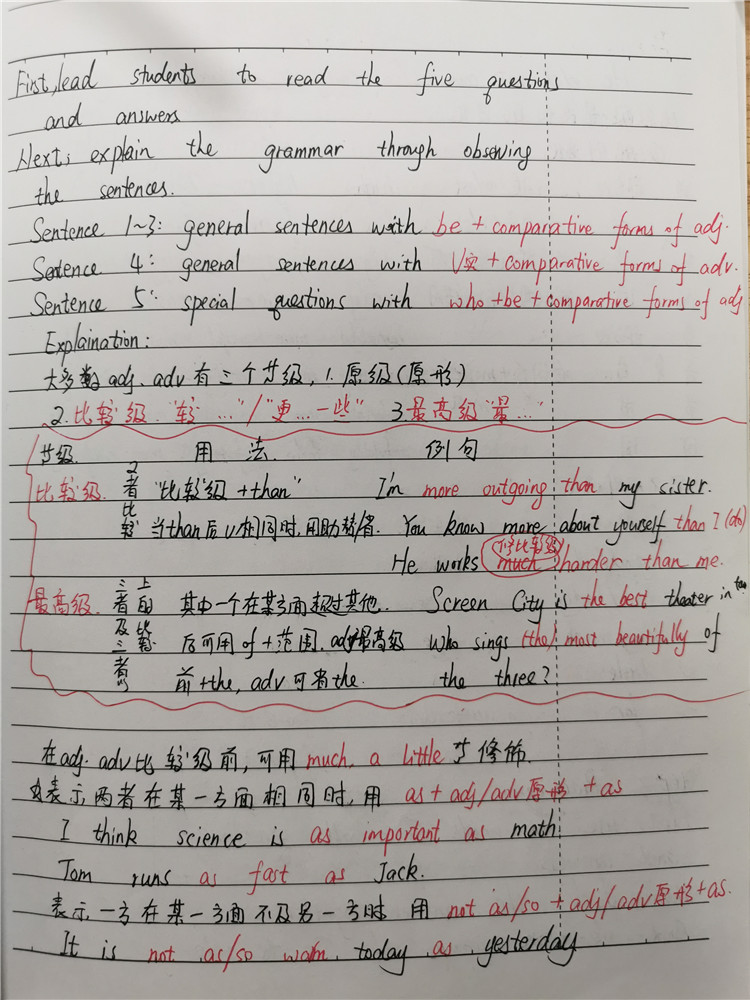 First, lead students to read the five questions
and answers
Next, explain the grammar through observing
the sentences.
Sentence 1~3: general sentences with be + comparative forms of adj.
Sentence 4: general sentences with V实 + comparative forms of adv.
Sentence 5: special questions with who + be + comparative forms of adj
Explaination:
大多数 adj. adv 有三个等级, 1. 原级(原形)
2. 比较级. "较…"/"更…一些" 3. 最高级"最…"
等级. 用法. 例句
比较级. 2者比较 "比较级 + than" I'm more outgoing than my sister.
当than后V相同时,用助替省. You know more about yourself than I (do)
(修比较级)
He works much harder than me.
最高级. 三者及三者以上的比较 其中一个在某方面超过其他. Screen City is the best theater in town
后可用 of + 范围. adj最高级 Who sings (the) most beautifully of
前+the, adv可省the. the three?
在adj. adv比较级前, 可用 much, a little 等修饰.
表示两者在某一方面相同时, 用 as + adj/adv原形 + as
I think science is as important as math
Tom runs as fast as Jack.
表示一方在某一方面不及另一方时 用 not as/so + adj/adv原形 + as.
It is not as/so warm today as yesterday